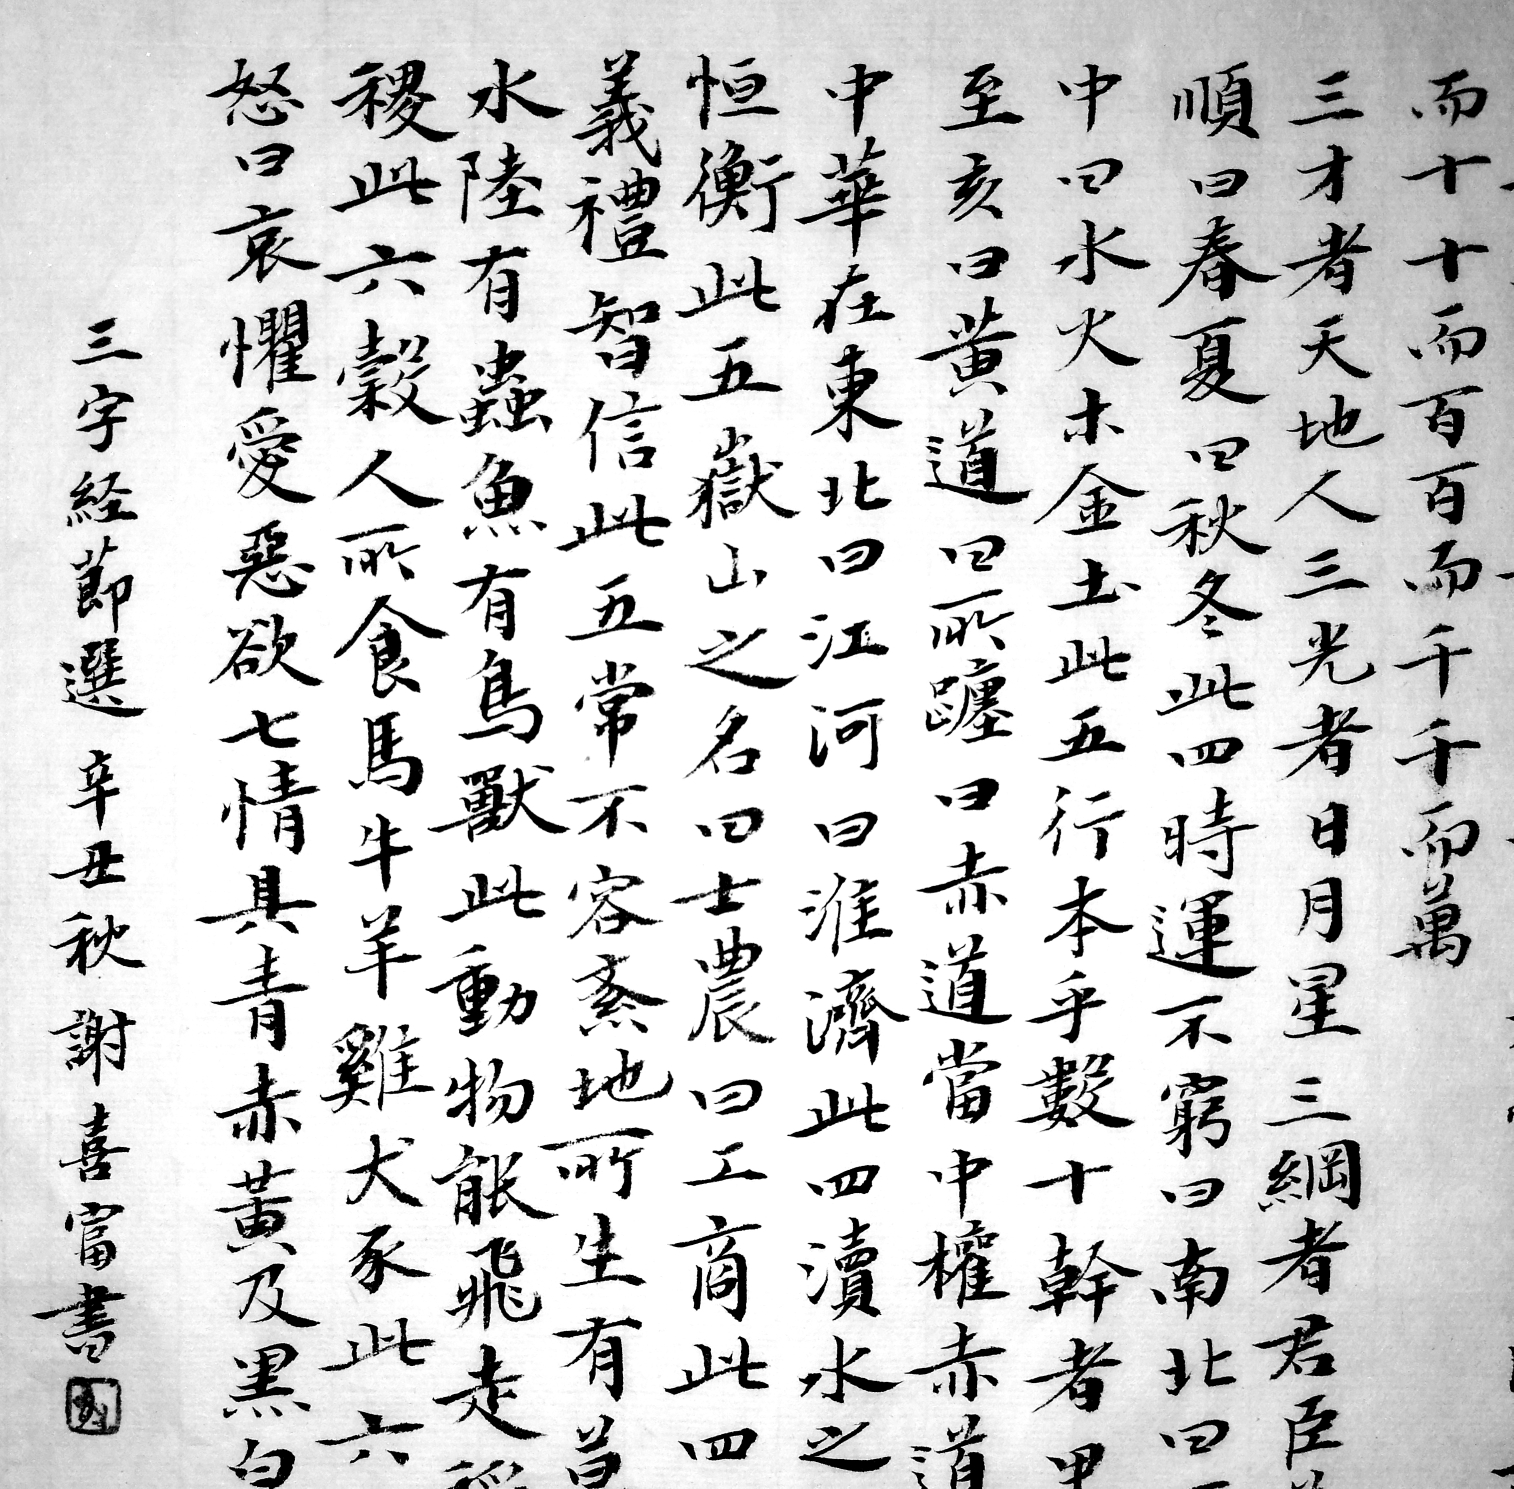 而十十而百百而千千而萬
三才者天地人三光者日月星三綱者君臣
順曰春夏曰秋冬此四時運不窮曰南北曰
中曰水火木金土此五行本乎數十幹者甲
至亥曰黃道曰所躔曰赤道當中權赤道
中華在東北曰江河曰淮濟此四瀆水之
恒衡此五嶽山之名曰士農曰工商此四
義禮智信此五常不容紊地所生有草
水陸有蟲魚有鳥獸此動物能飛走稻
稷此六穀人所食馬牛羊雞犬豕此六
怒曰哀懼愛惡欲七情具青赤黃及黑白
三字経節選 辛丑秋 謝喜富書